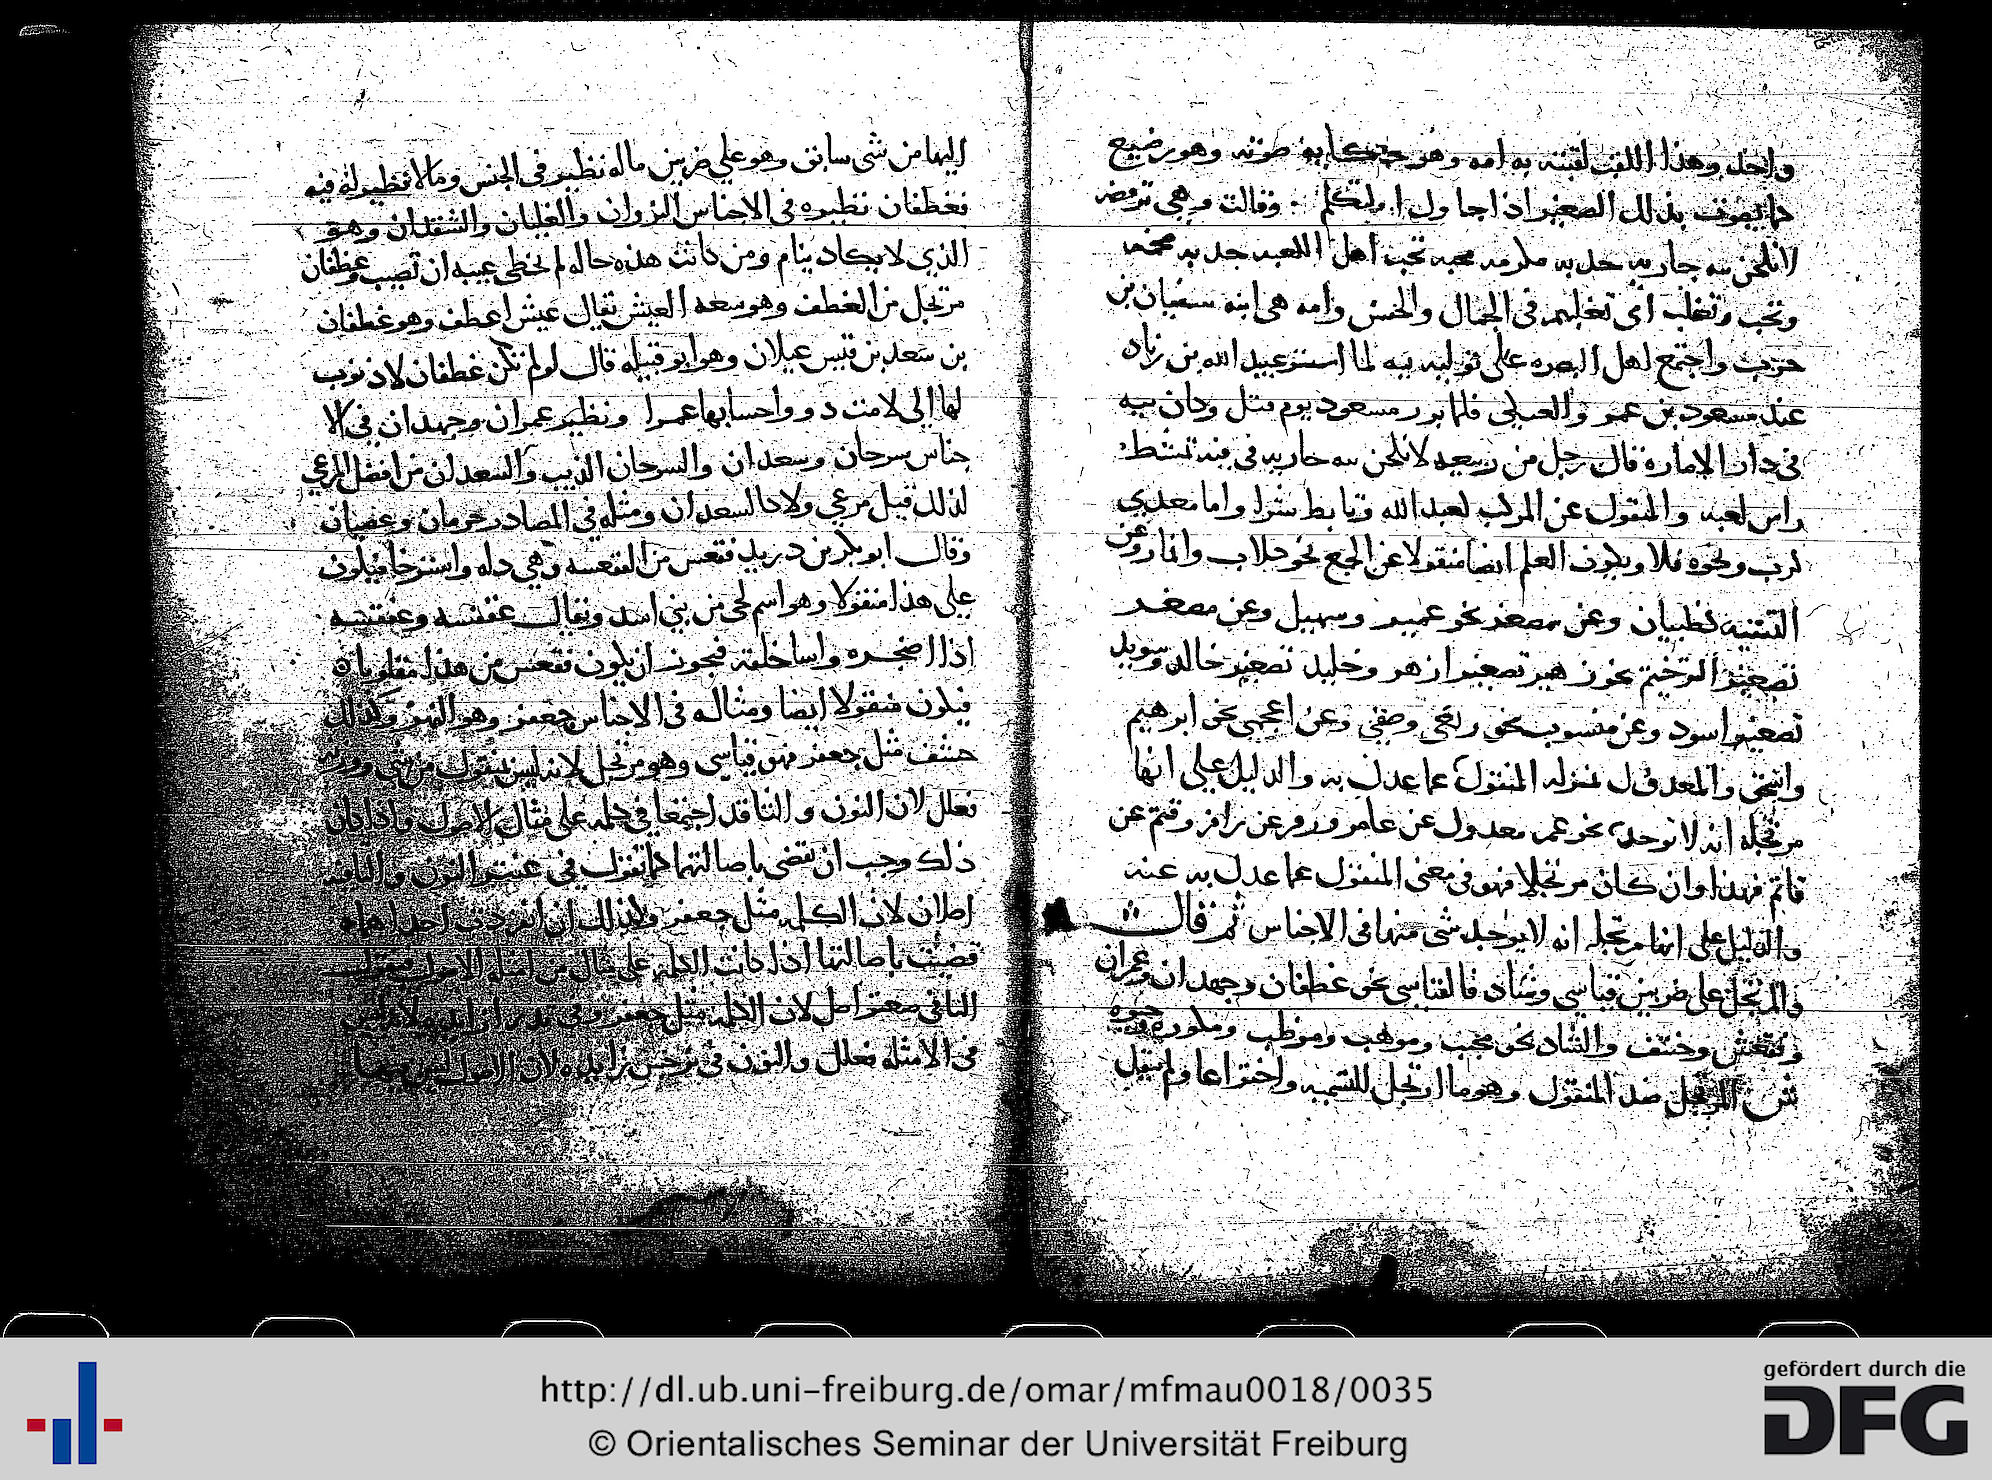 واحد وهذا اللقب لقبته به امه وهو حكاية صوته وهو رضيع
كما يصوت بذلك الصغير اذا حاول ان يتكلم وقالت وهي ترقصه
لانكحن ببه جاريه خدبه مكرمه محبه تحب اهل الكعبه
وتحب وتغلب اى تغلبهم فى الجمال والحسن وامه هى ابنه سفيان بن
حرب واجتمع اهل البصره على توليه ببه لما استتر عبيد الله بن زياد
عند مسعود بن عمرو فلما مسعود يوم قتل وكان ببه
فى دار الاماره قال رجل من ربيعه لانكحن ببه جاريه فى قبه تمشط
راس لعبه والمنقول عن المركب كعبد الله وتابط شرا واما معدي
كرب ونحوه فلا ويكون العلم ايضا منقولا عن الجمع نحو كلاب وانمار وعن
التثنيه كظبيان وعن مصغر نحو عمير وسهيل وعن مصغر
تصغير الترخيم نحو زهير تصغير ازهر وخليد تصغير خالد وسويد
تصغير اسود وعن منسوب نحو ربعى وصيفى وعن اعجمى نحو ابرهيم
واسحق والمعدول بمنزله المنقول عما عدل به والدليل على انها
مرتجله انه لا توجد نحو عمر معدول عن عامر وزفر عن زافر وقثم عن
قاثم فهذا وان كان مرتجلا فهو فى معنى المنقول عما عدل به عنه
والدليل على انها مرتجله انه لا يوجد شى منها فى الاجناس ثم قال
والمرتجل على ضربين قياسي وشاذ فالقياسي نحو غطفان وعمران وحمدان
وفقعس وحنتف والشاذ نحو محبب وموهب وموظب ومكوزه وحيوه
ش المرتجل ضد المنقول وهو ما ارتجل للتسميه واختراعا ولم ينقل
اليها من شى سابق وهو علي ضربين ماله نظير فى الجنس وما لا نظير له فيه
فغطفان نظيره فى الاجناس النزوان والغليان والشقذان وهو
الذي لا يكاد ينام ومن كانت هذه حاله لم تخطى عينه ان تصيب وغطفان
مرتجل من الغطف وهو سعه العيش يقال عيش اغطف وهو غطفان
بن سعد بن قيس عيلان وهو ابو قبيله قال لو لم تكن غطفان لا ذنوب
لها الي لامت ذوو احسابها عمرا ونظير عمران وحمدان فى الا
جناس سرحان وسعدان والسرحان الذيب والسعدان من افضل المرعي
لذلك قيل مرعي ولا كالسعدان ومثله في المصادر حرمان وعصيان
وقال ابو بكر بن دريد فقعس من الفقعسه وهي ذله واسترخا فيكون
على هذا منقولا وهو اسم لحى من بني اسد ويقال عقفسه وعفقسه
اذا اضجره واسا خلقه فيجوز ان يكون فقعس من هذا مقلوبا
فيكون منقولا ايضا ومثاله فى الاجناس جعفر وهو النهر وكذلك
حنتف مثل جعفر فهو قياسي وهو مرتجل لانه ليس بمنقول من شى ووزنه
فعلل لان النون والتا قد اجتمعا في كلمه على مثال الاصول واذا كان
ذلك وجب ان تقضى باصالتهما كما تقول فى عنتر النون والتا فيه
اصلان لان الكلمه مثل جعفر وكذلك ان انفردت احداهما
قضيت باصالتها اذا كانت الكلمه على مثال من امثله الاصول فتقول
التا فى صعتر اصل لان الكلمه مثل جعفر
فى الامثله فعلل والنون فى نرجس زايده لان الاصول ليس فيها
http://dl.ub.uni-freiburg.de/omar/mfmau0018/0035
© Orientalisches Seminar der Universität Freiburg
gefördert durch die
DFG